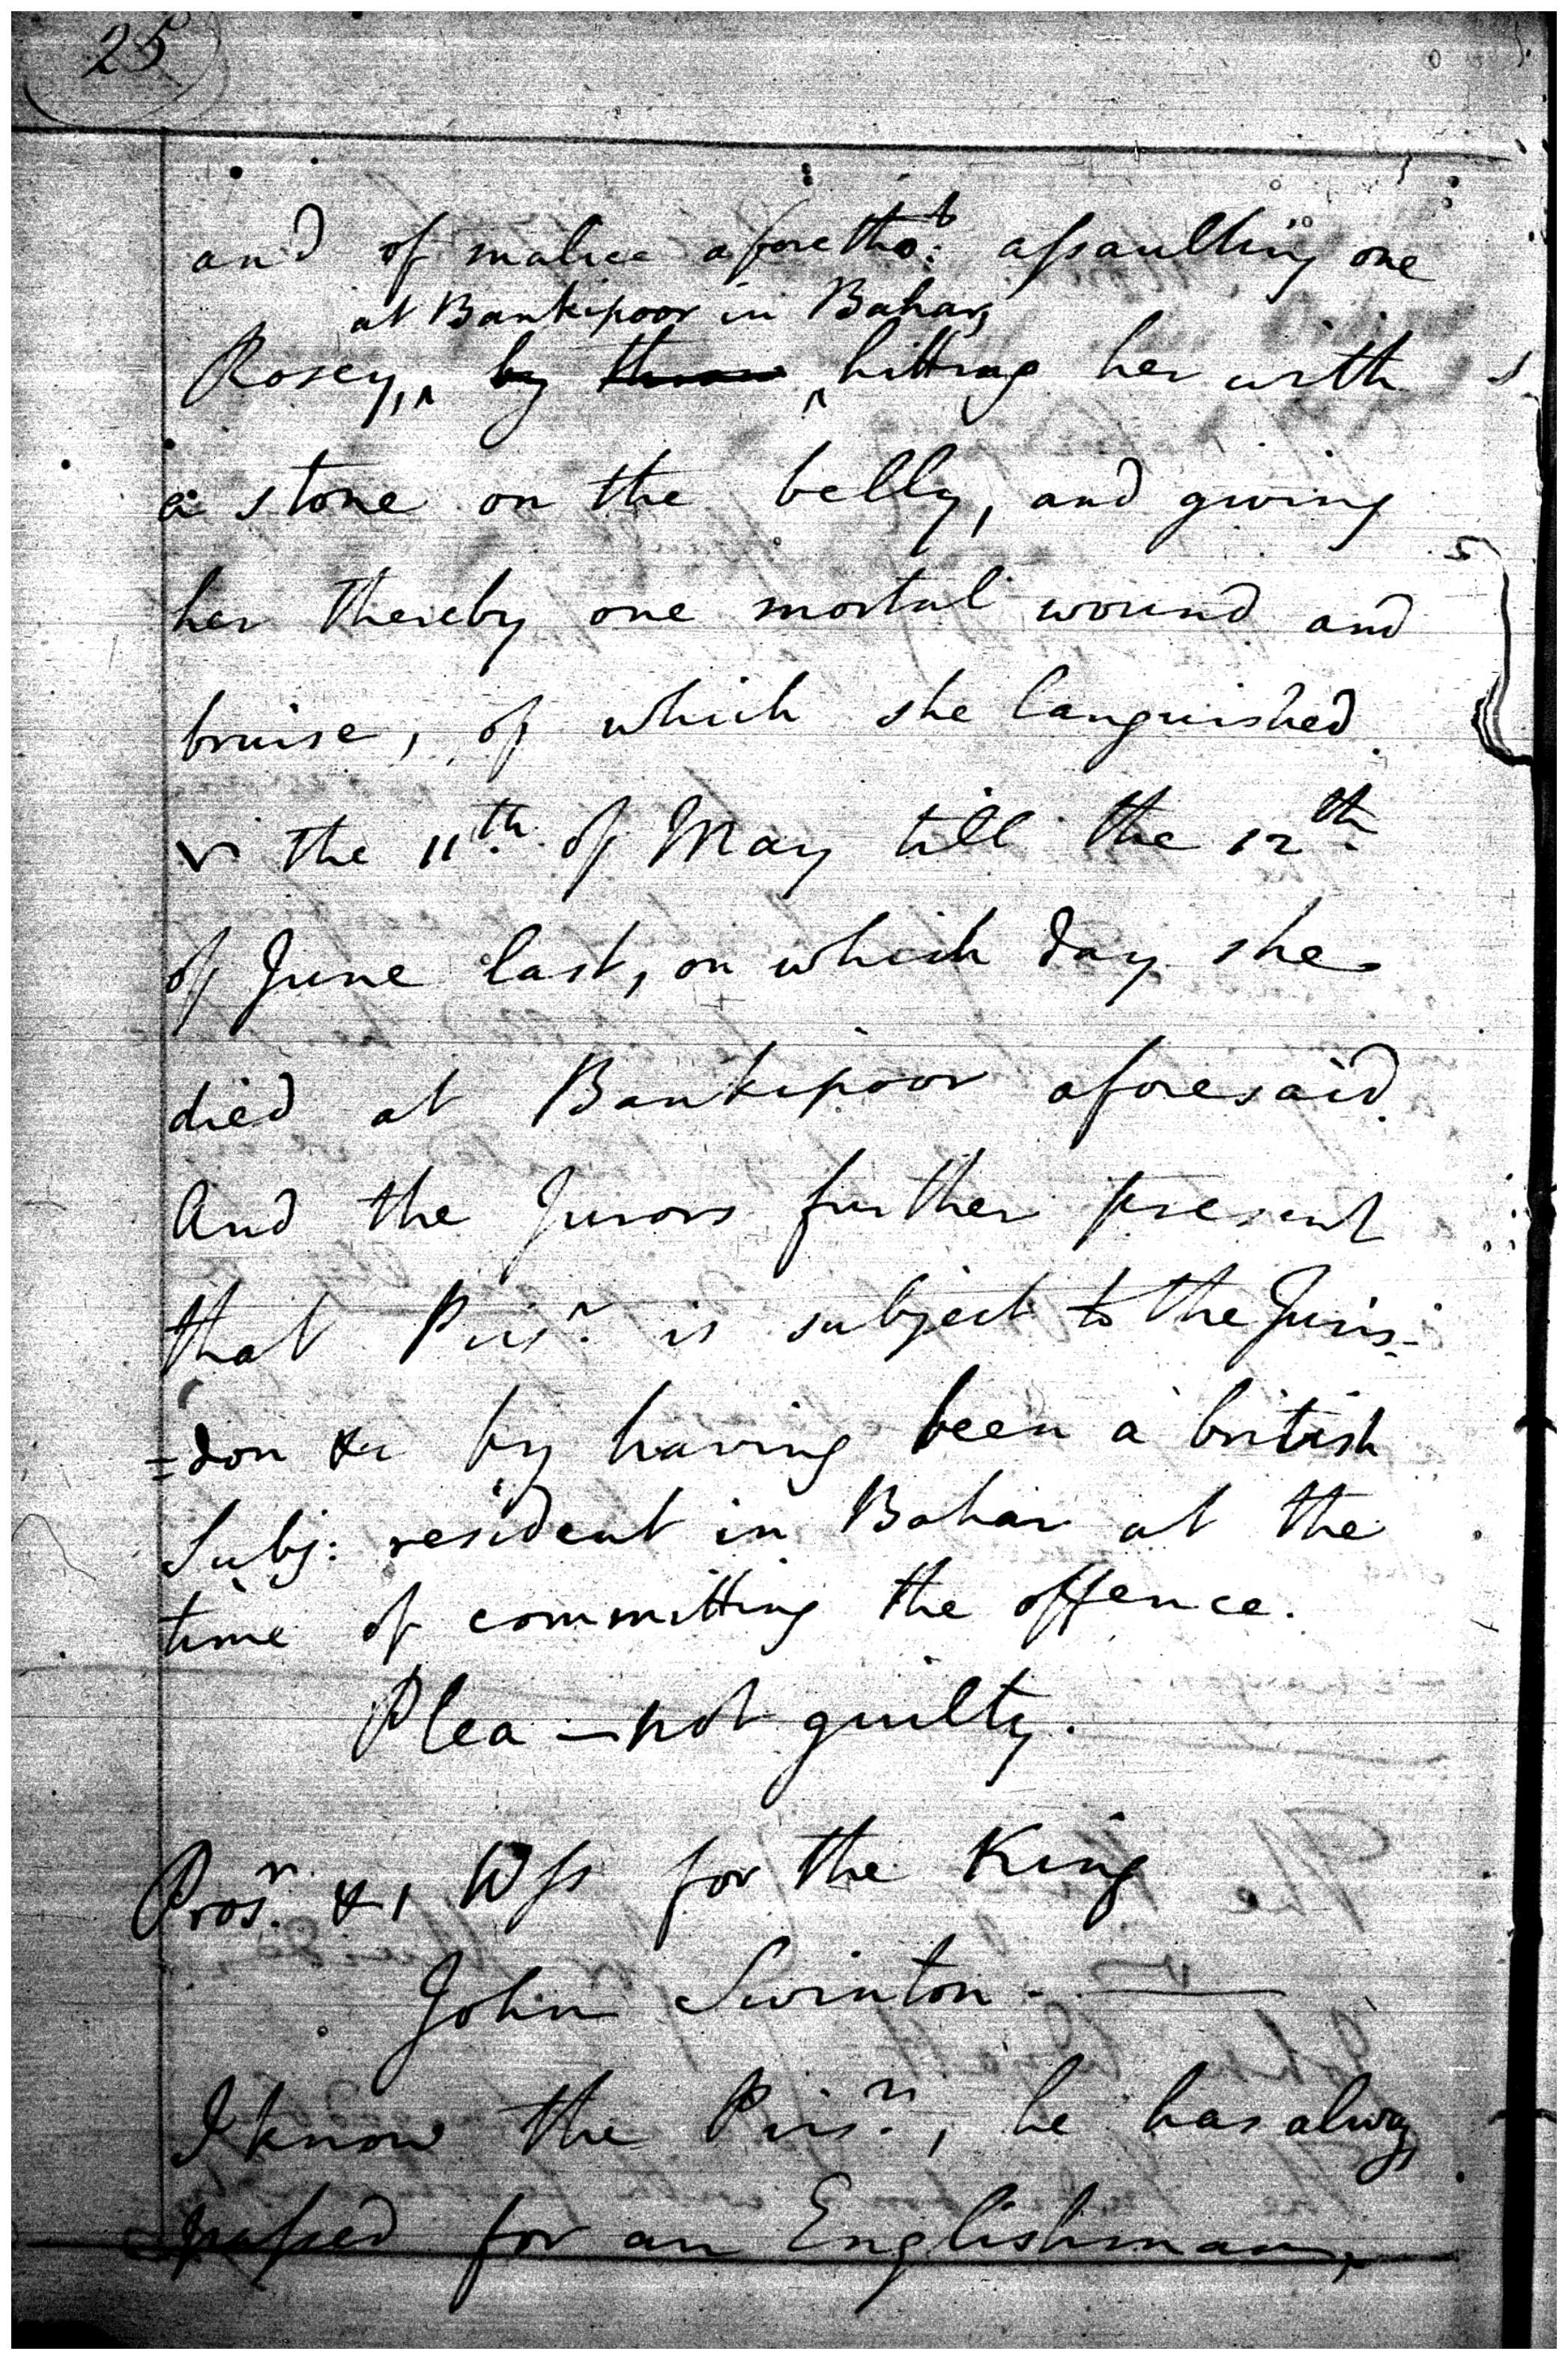 25
and of malice aforetho:t assaulting one
at Bankipoor in Bahar,
Rosey, by hitting her with
a stone on the belly, and giving
her thereby one mortal wound and
bruise, of which she languished
the 11th of May till the 12th
of June last, on which day she
died at Bankipoor aforesaid.
And the Jurors further present
that Pris.r is subject to the Juris-
=don &c by having been a british
Subj: resident in Bahar at the
time of committing the offence.
Plea — not guilty.
Pros.r & 1 Wss for the King
John Swinton. —
I know the Pris.r, he has always
passed for an Englishman,